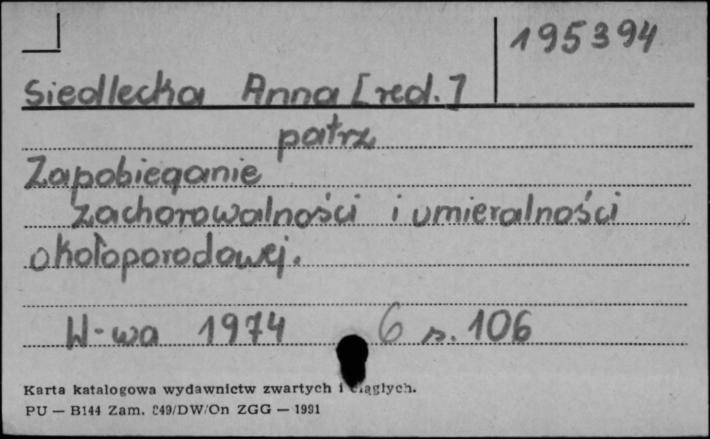 195394
Siedlecka Anna [red.]
patrz
Zapobieganie
zachorowalności i umieralności
okołoporodowej.
W-wa 1974 6 s. 106
Karta katalogowa wydawnictw zwartych i ciągłych.
PU — B144 Zam. 849/DW/On ZGG — 1991